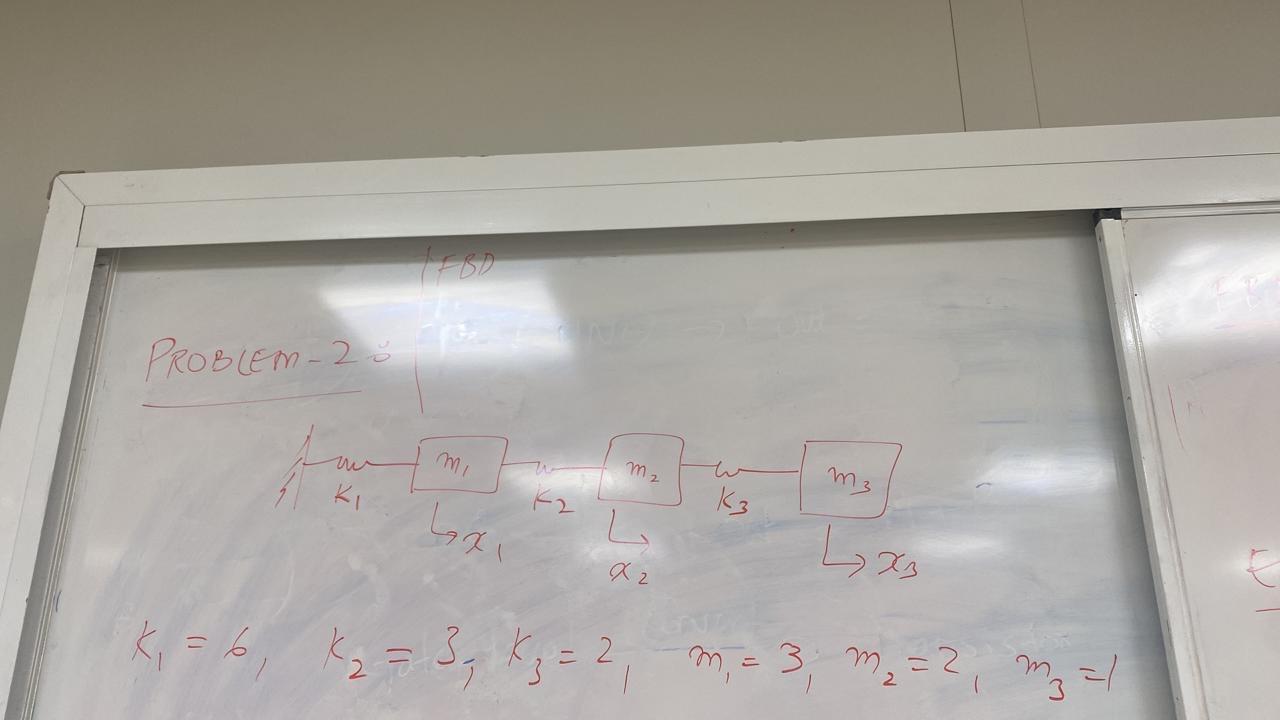 FBD
PROBLEM-2:
m₁ m₂ m₃
K₁ K₂ K₃
x₁ x₂ x₃
K₁ = 6, K₂ = 3, K₃ = 2, m₁ = 3, m₂ = 2, m₃ = 1